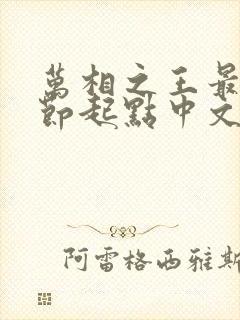 萬相之王最
節起點中文
阿雷格西雅斯